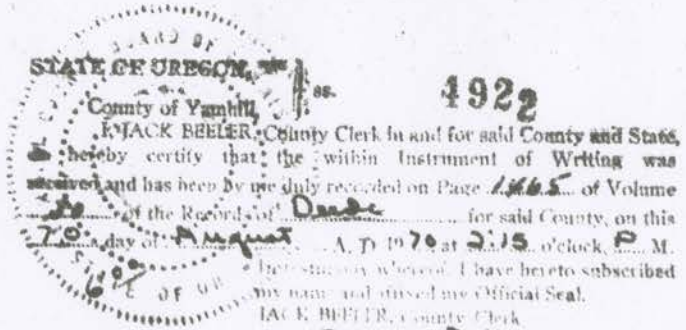 BOARD OF
STATE OF OREGON, ss.
4922
County of Yamhill
I, JACK BEELER, County Clerk in and for said County and State,
hereby certify that the within Instrument of Writing was
received and has been by me duly recorded on Page of Volume
of the Records of Deeds for said County, on this
day of August A. D. 1970 at 2:15 o'clock, P. M.
In testimony whereof, I have hereto subscribed
my name and affixed my Official Seal.
JACK BEELER, County Clerk
STATE OF OR